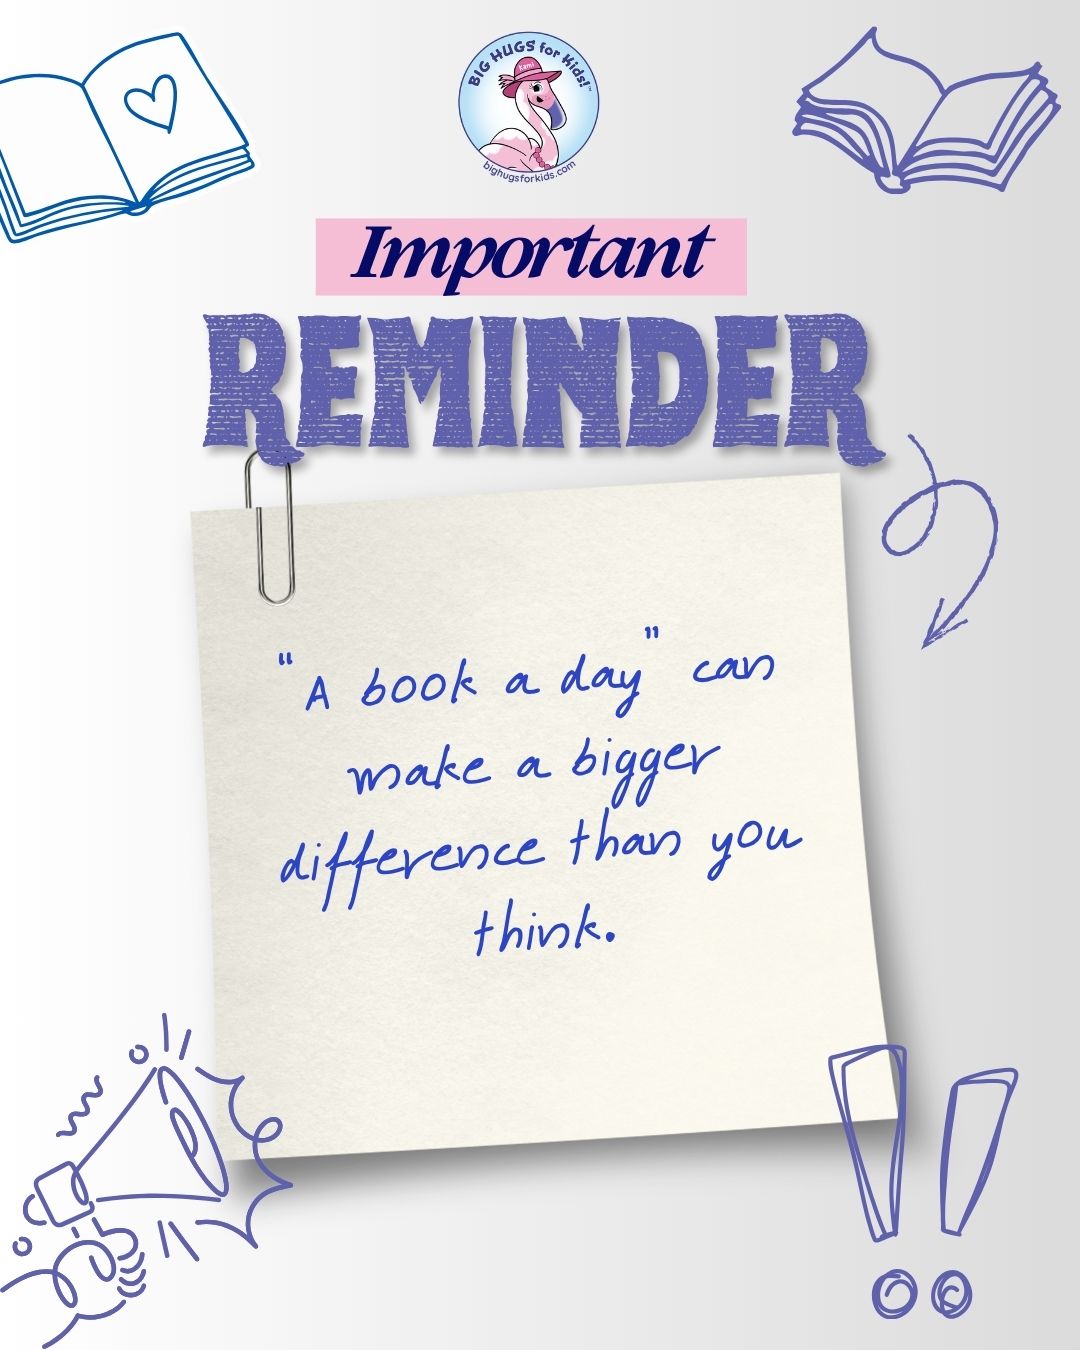 BIG HUGS for Kids!™
Kami
bighugsforkids.com
Important
REMINDER
"A book a day" can
make a bigger
difference than you
think.